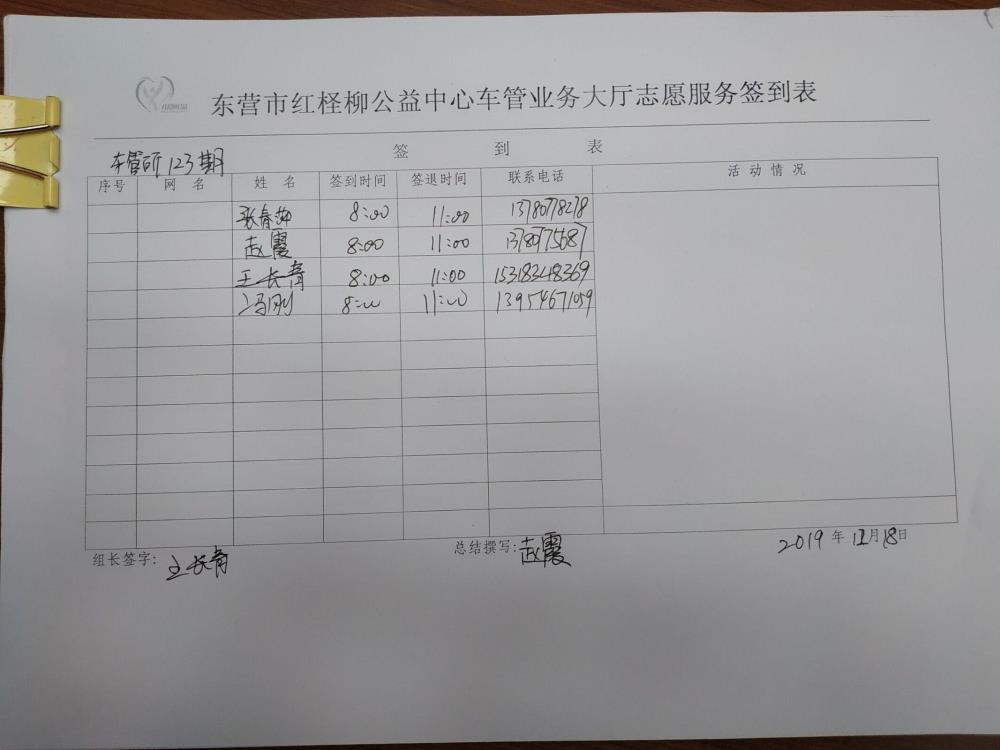 东营市红柽柳公益中心车管业务大厅志愿服务签到表
签 到 表
车管所123期
序号 网 名 姓 名 签到时间 签退时间 联系电话 活 动 情 况
张春茹 8:00 11:00 13780778278
赵霞 8:00 11:00 13780775687
王长青 8:00 11:00 15318348369
冯刚 8:00 11:00 13954671059
组长签字: 王长青 总结撰写: 赵霞 2019 年 12月18日